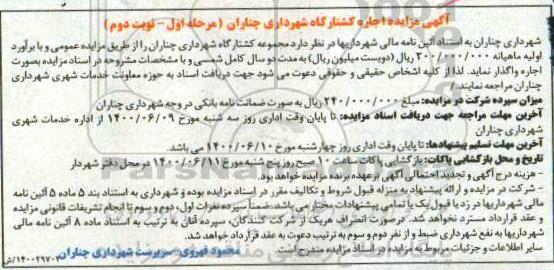 آگهی مزایده اجاره کشتارگاه شهرداری چناران (مرحله اول - نوبت دوم)
شهرداری چناران به استناد آئین نامه مالی شهرداریها در نظر دارد مجموعه کشتارگاه شهرداری چناران را از طریق مزایده عمومی و با برآورد
اولیه ماهیانه ۲۰۰/۰۰۰/۰۰۰ ریال (دویست میلیون ریال) به مدت دو سال کامل شمسی و با مشخصات مشروحه در اسناد مزایده بصورت
اجاره واگذار نماید. لذا از کلیه اشخاص حقیقی و حقوقی دعوت می شود جهت دریافت اسناد به حوزه معاونت خدمات شهری شهرداری
چناران مراجعه نمایند.
میزان سپرده شرکت در مزایده: مبلغ ۲۴۰/۰۰۰/۰۰۰ ریال به صورت ضمانت نامه بانکی در وجه شهرداری چناران
آخرین مهلت مراجعه جهت دریافت اسناد مزایده: تا پایان وقت اداری روز سه شنبه مورخ ۱۴۰۰/۰۶/۰۹ از اداره خدمات شهری
شهرداری چناران
آخرین مهلت تسلیم پیشنهادها: تا پایان وقت اداری روز چهارشنبه مورخ ۱۴۰۰/۰۶/۱۰ می باشد.
تاریخ و محل بازگشایی پاکات: بازگشایی پاکات ساعت ۱۰ صبح روز پنج شنبه مورخ ۱۴۰۰/۰۶/۱۱ در محل دفتر شهردار
- هزینه درج آگهی و تجدید احتمالی آگهی بر عهده برنده مزایده خواهد بود.
- شرکت در مزایده و ارائه پیشنهاد به منزله قبول شروط و تکالیف مقرر در اسناد مزایده بوده و شهرداری به استناد بند ۵ ماده ۵ آئین نامه
مالی شهرداریها در رد یا قبول یک یا تمامی پیشنهادات مختار می باشد. ضمناً سپرده نفرات اول، دوم و سوم تا انجام تشریفات قانونی مزایده
و عقد قرارداد مسترد نخواهد شد. در صورت انصراف هریک از شرکت کنندگان، سپرده آنان به ترتیب به استناد ماده ۸ آئین نامه مالی
شهرداریها به نفع شهرداری ضبط و از نفر دوم و سوم به ترتیب دعوت به عقد قرارداد خواهد شد.
سایر اطلاعات و جزئیات مربوط به مزایده، در اسناد مزایده مندرج است.
محمود قهروی - سرپرست شهرداری چناران